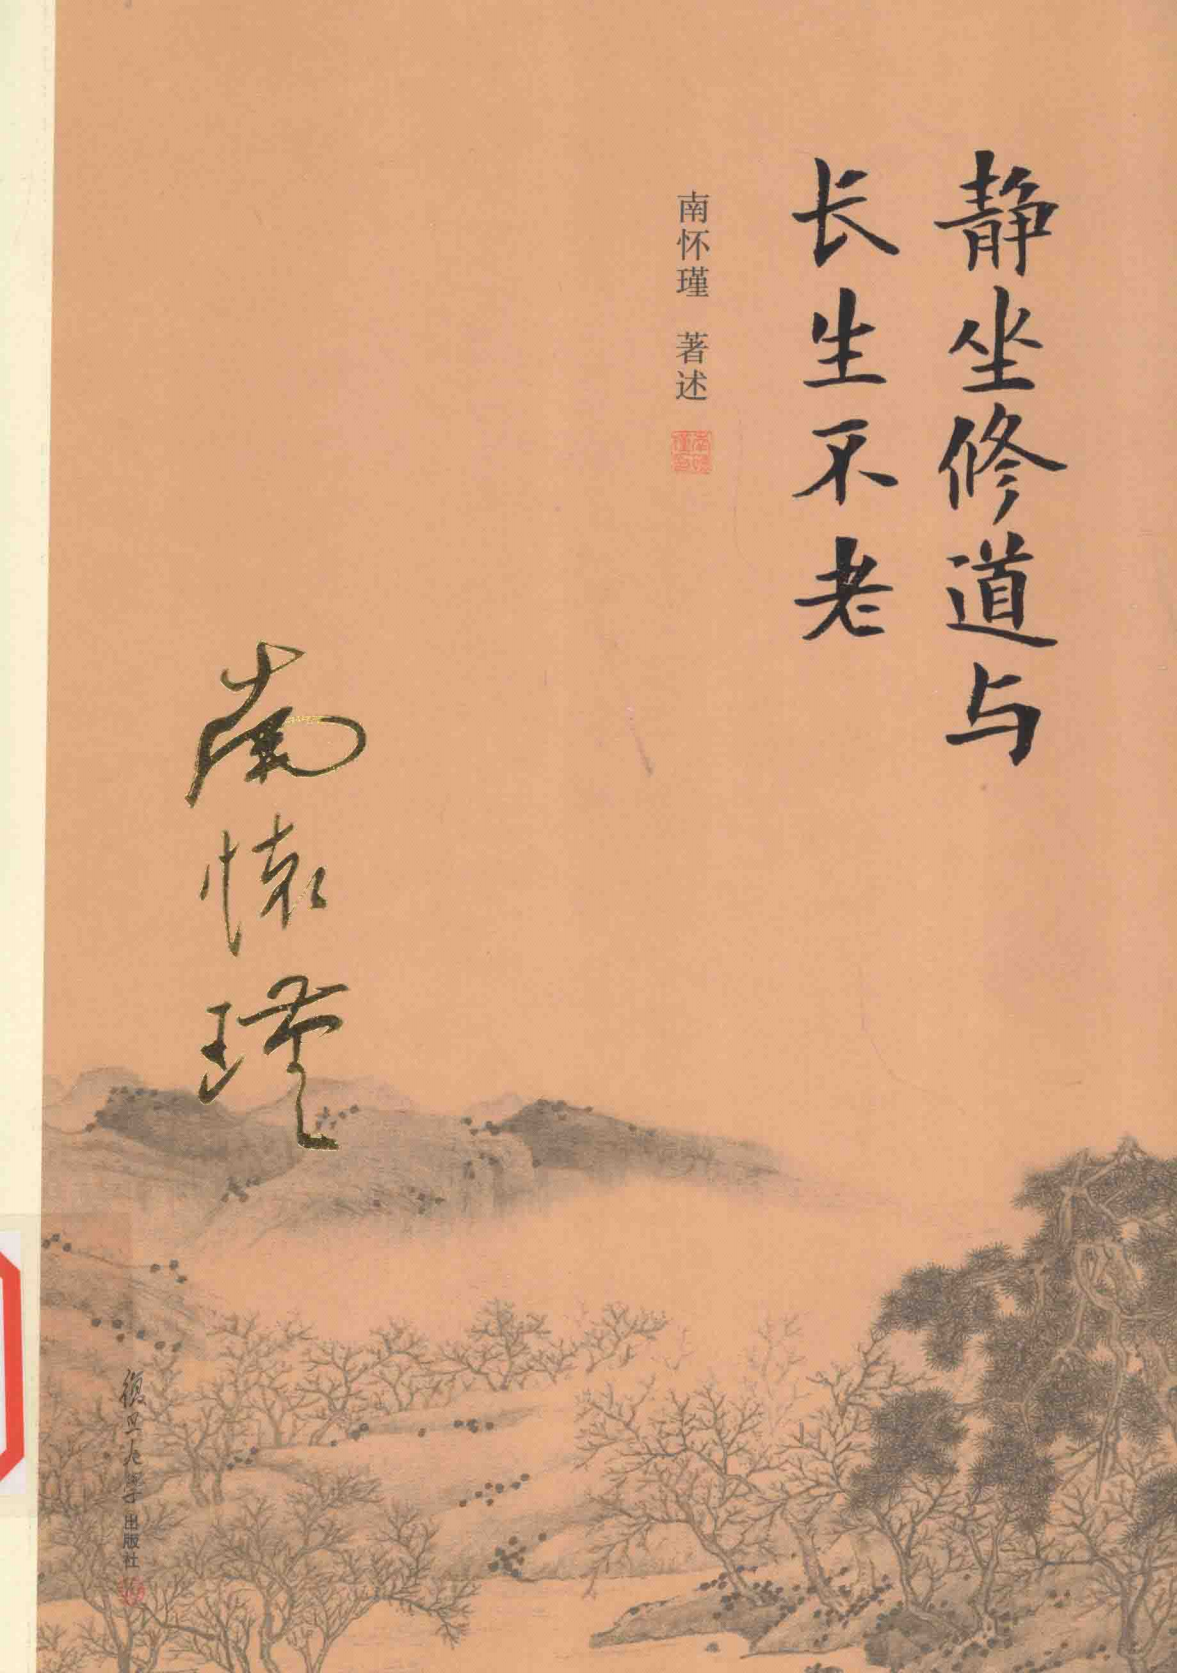 静坐修道与
长生不老
南怀瑾 著述
南懷瑾
復旦大学出版社